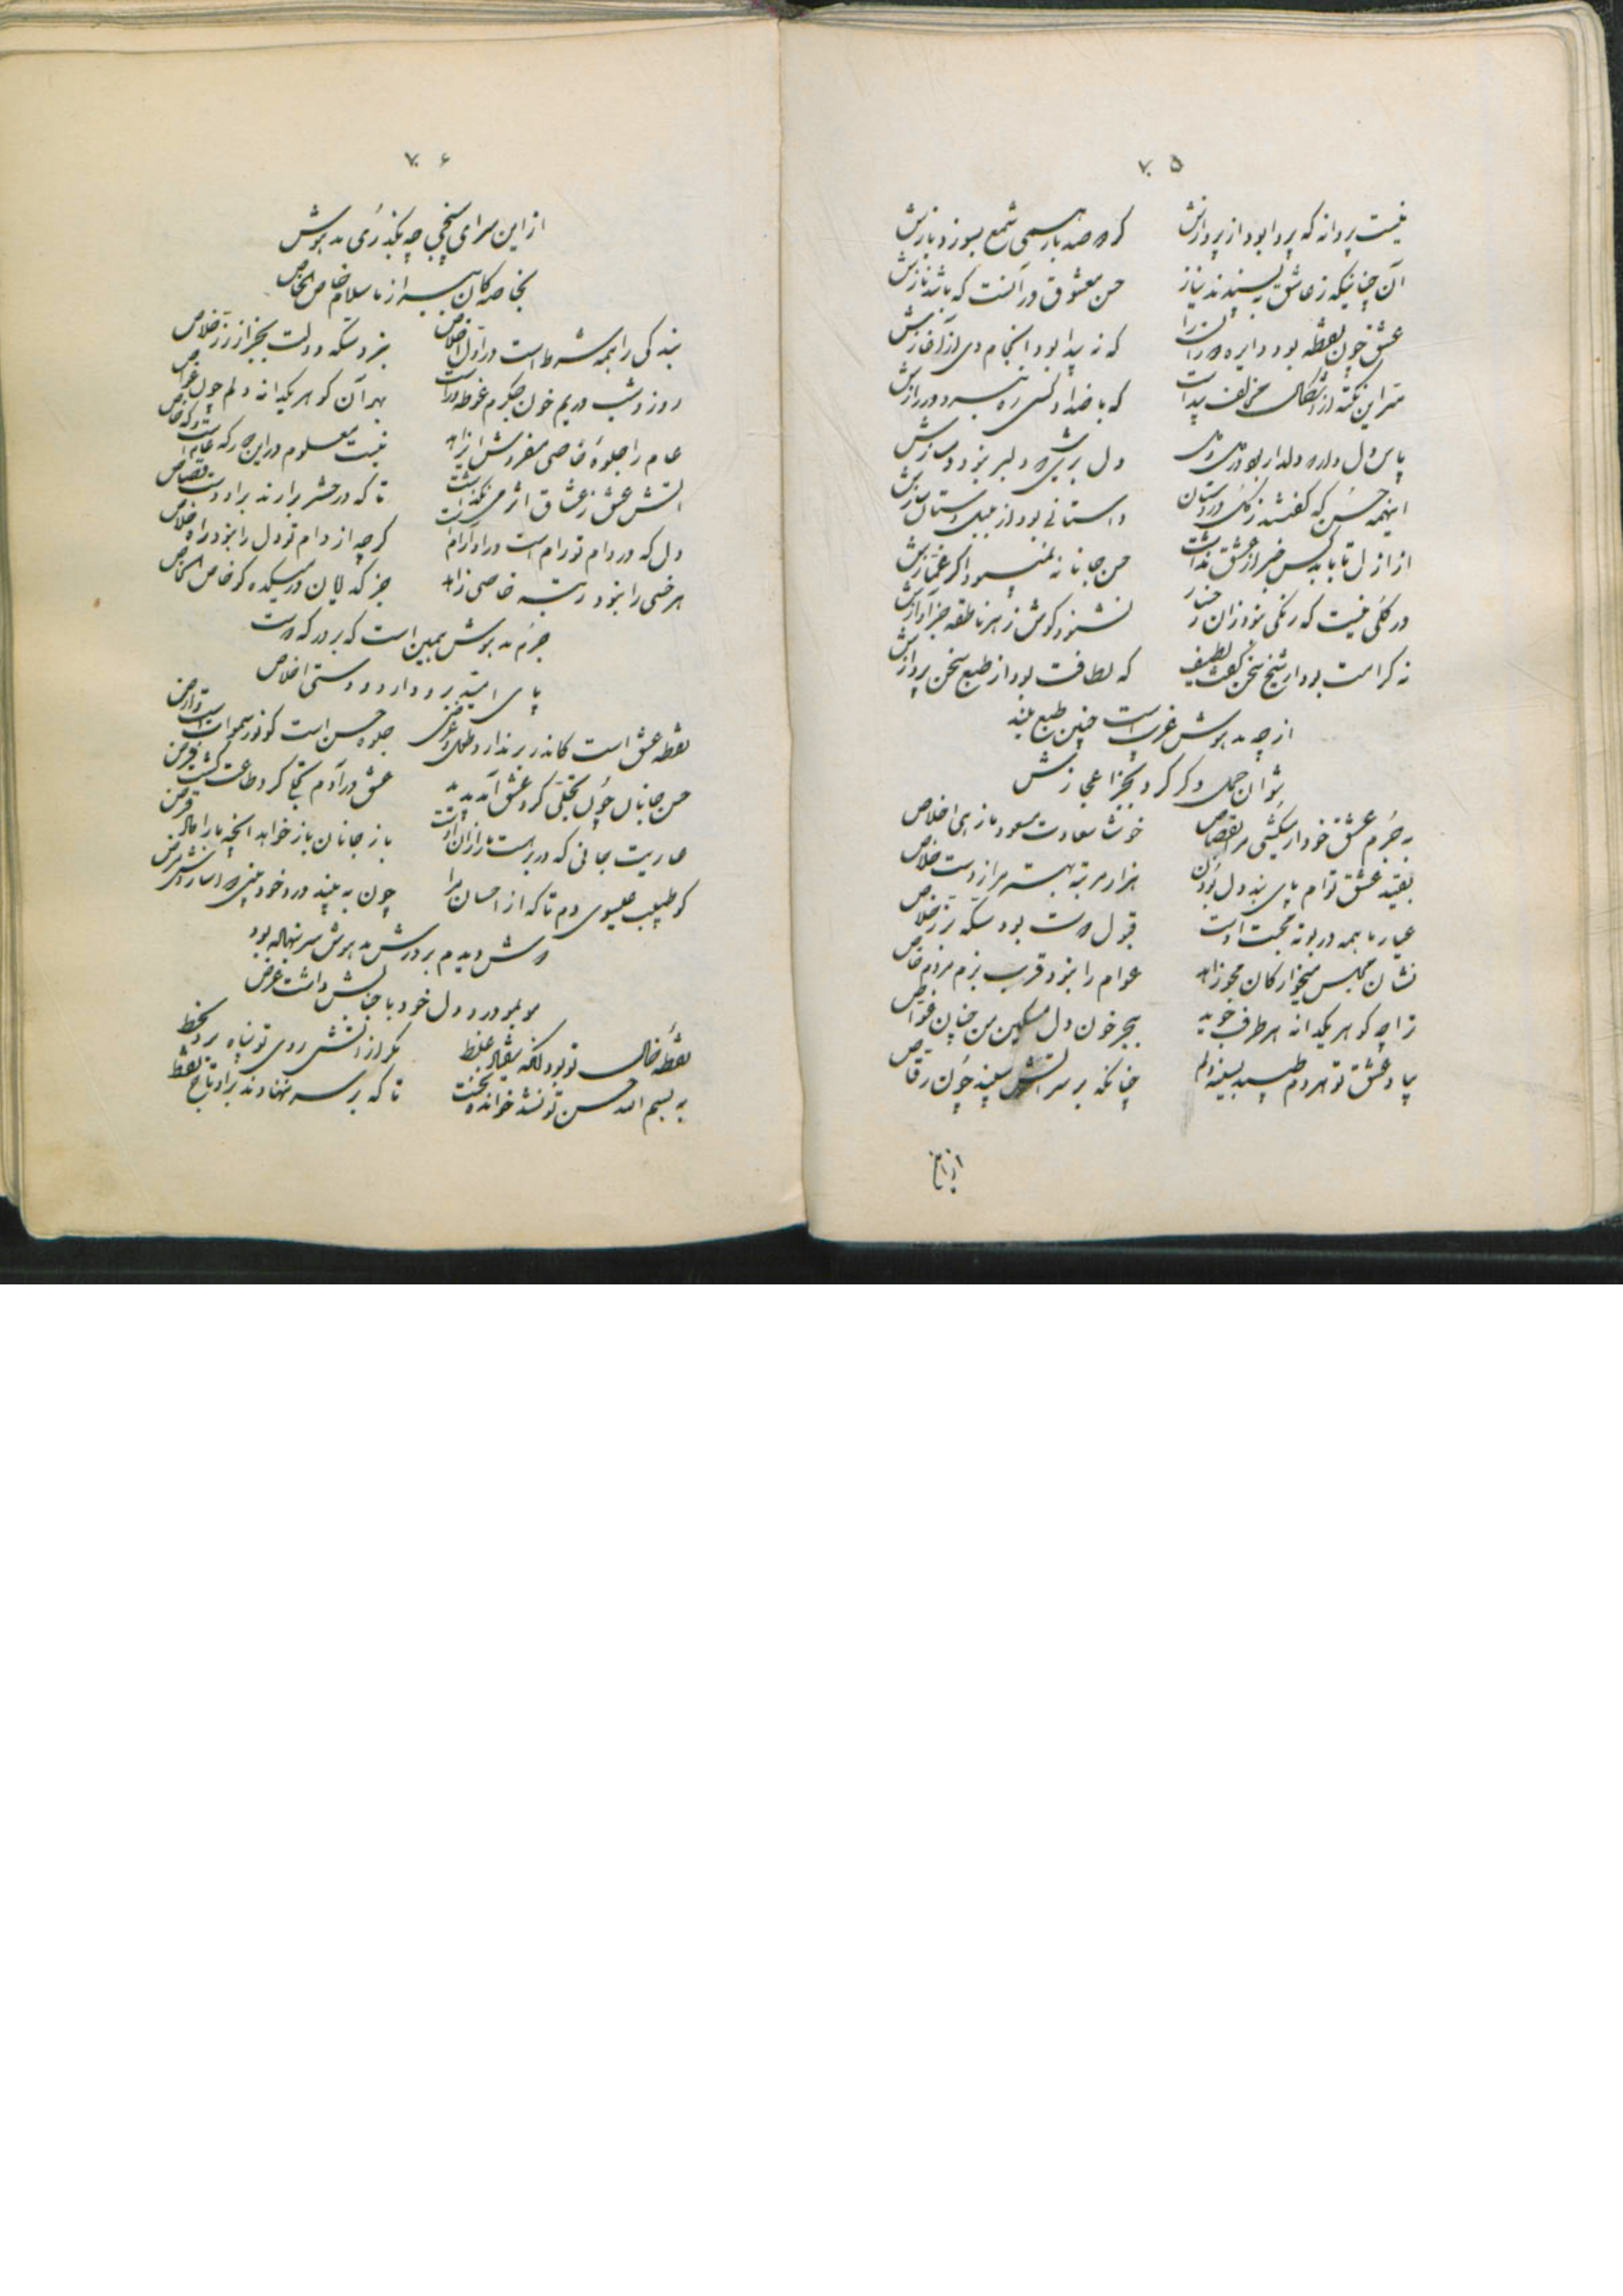 ۷۰۵
نیست پروانه که پروا بود از پروازش
که صد بار همی شمع بسوزد بازش
آن چنانیکه ز عاشق بپسندند نیاز
حسن معشوق در آنست که باشد نازش
عشق چون نقطه بود دایره
که نه پیدا بود انجام وی از آغازش
سر این نکته از اشکال مخالف پیداست
که با ضداد کسی ره نبرد در رازش
پاس دل دلدار بود در همی
دل بریش دلبر بود
اینهمه حسن که گفتند ز گل در بستان
داستانی بود از بلبل دستان سازش
از ازل تا بابد کس خبر از عشق نداشت
حسن جانانه نمیبود اگر غمازش
در گلی نیست که رنگی نبود زان رخسار
نشنود گوش ز هر ناطقه جز آوازش
نه کرامت بود ار شیخ سخن گفت لطیف
که لطافت بود از طبع سخن پردازش
از چه مدهوش غریب است چنین طبع بلند
نتوان حمل دگر کرد بجز اعجازش
به جرم عشق خود ار میکشی مرا بقصاص
خوشا سعادت مسعود ما زهی اخلاص
بقید عشق توام پای بند دل بودن
هزار مرتبه بهتر مرا ز دست خلاص
عیار ما همه در بوته محبت اوست
قبول بود سکه زر خلاص
نشان مجلس میخوارگان مجو زاهد
عوام را نبود قرب بزم مردم خاص
ز اچه گوهر یکدانه هر طرف جوید
ببحر خون دل مسکین من چنان غواص
بیاد عشق تو هر دم طپید بسینه دلم
چنانکه بر سر آتش سپند چون رقاص
از این
۷۰۶
از این سرای سپنجی چه بگذری مدهوش
بخاصه کان ببر از ما سلام خاص الخاص
بندگی را همه شرط است در اول اخلاص
نبرد سکه دولت بجز از زر خلاص
روز و شب در یم خون جگرم غوطه ور است
بهر آن گوهر یکدانه دلم چون غواص
عام را جلوه خاصی مفروش ای زاهد
نیست معلوم در این که عام است و که خاص
آتش عشق ز عشاق اثر می نگذاشت
تا که در حشر برارند براو دست قصاص
دل که در دام تو رام است در او آرام است
گرچه از دام تو دل را نبود راه خلاص
هر خسی را نبود رتبه خاصی زاهد
جز گدایان در میکده کو خاص الخاص
جرم مدهوش همین است که بر درگه
پای امید برو دارد و دستی اخلاص
نقطه عشق است کاندر بر ندارد طول و عرض
جلوه حسن است کو نور سموات است و ارض
حسن جانان چون تجلی کرد عشق آمد پدید
عشق در آدم تجلی کرد طاعت گشت فرض
عاریت جانی که در بر هست ما را زان اوست
باز جانان باز خواهد آنچه ما را داد قرض
کو طبیب عیسوی دم تا که از احسان مرا
چون به بیند درد خود بینی شناسد مرض
دیدم بر درش مدهوش سر بنهاده بود
مو بمو درد دل خود با جنابش داشت عرض
نقطه خال تو بود آنکه بیفتاد غلط
مگر از آتش روی تو پناه برد بخط
به بسم الله حسن تو نشد خوانده نخست
تا که بر سر ننهادند براو تاج نقط